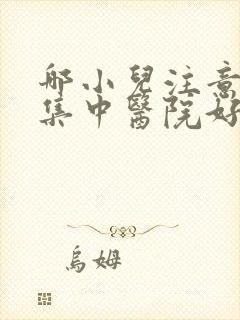 那小兒注意
集中醫院好
烏姆